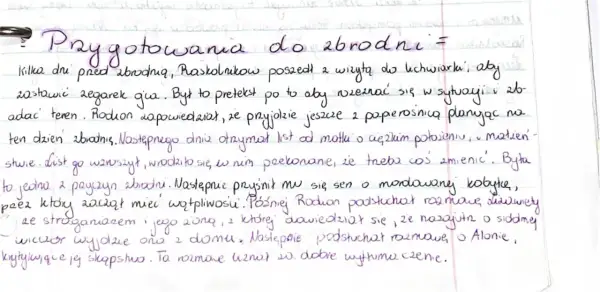 Przygotowania do zbrodni =
Kilka dni przed zbrodnią, Raskolnikow poszedł z wizytą do lichwiarki, aby
zastawić zegarek ojca. Był to pretekst po to aby rozeznać się w sytuacji i zb-
adać teren. Rodion zapowiedział, że przyjdzie jeszcze z papierośnicą planując na
ten dzień zbrodnię. Następnego dnia otrzymał list od matki o ciężkim położeniu, o małżeń-
stwie. List go wzruszył, wrodziło się w nim przekonanie, że trzeba coś zmienić. Była
to jedna z przyczyn zbrodni. Następnie przyśnił mu się sen o mordowanej kobyłce,
przez który zaczął mieć wątpliwości. Później Rodion podsłuchał rozmowę Lizawiety
ze straganiarzem i jego żoną, z której dowiedział się, że nazajutrz o siódmej
wieczór wyjdzie ona z domu. Następnie podsłuchał rozmowę o Alonie,
krytykującą jej skąpstwo. Ta rozmowę uznał za dobre wytłumaczenie.